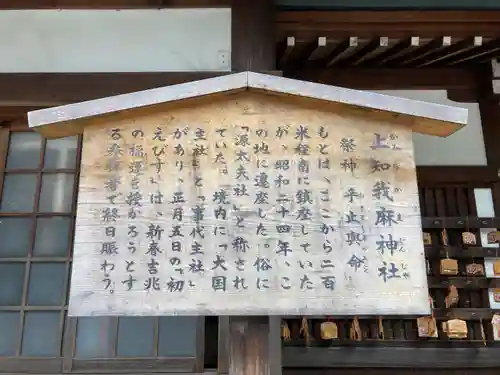 上知我麻神社
祭神 乎止與命
もとは、ここから二百
米程南に鎮座していた
が、昭和二十四年、こ
の地に遷座した。俗に
「源太夫社」と称され
ていた。境内に「大国
主社」と「事代主社」
があり、正月五日の「初
えびす」は、新春吉兆
の福運を授かろうとす
る参拝者で終日賑わう。